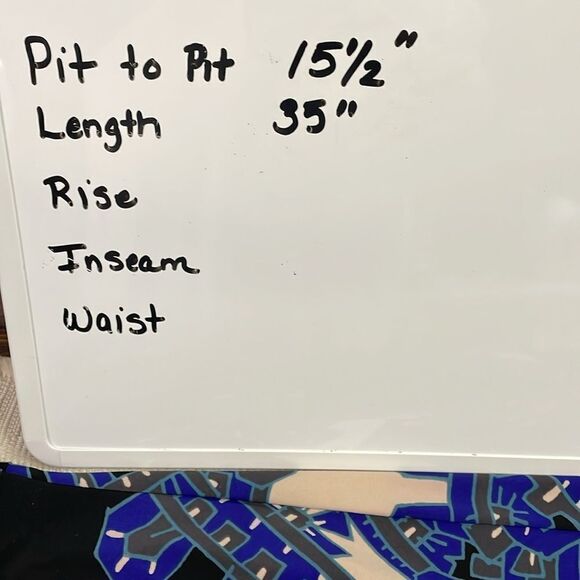 Pit to Pit 15½"
Length 35"
Rise
Inseam
Waist